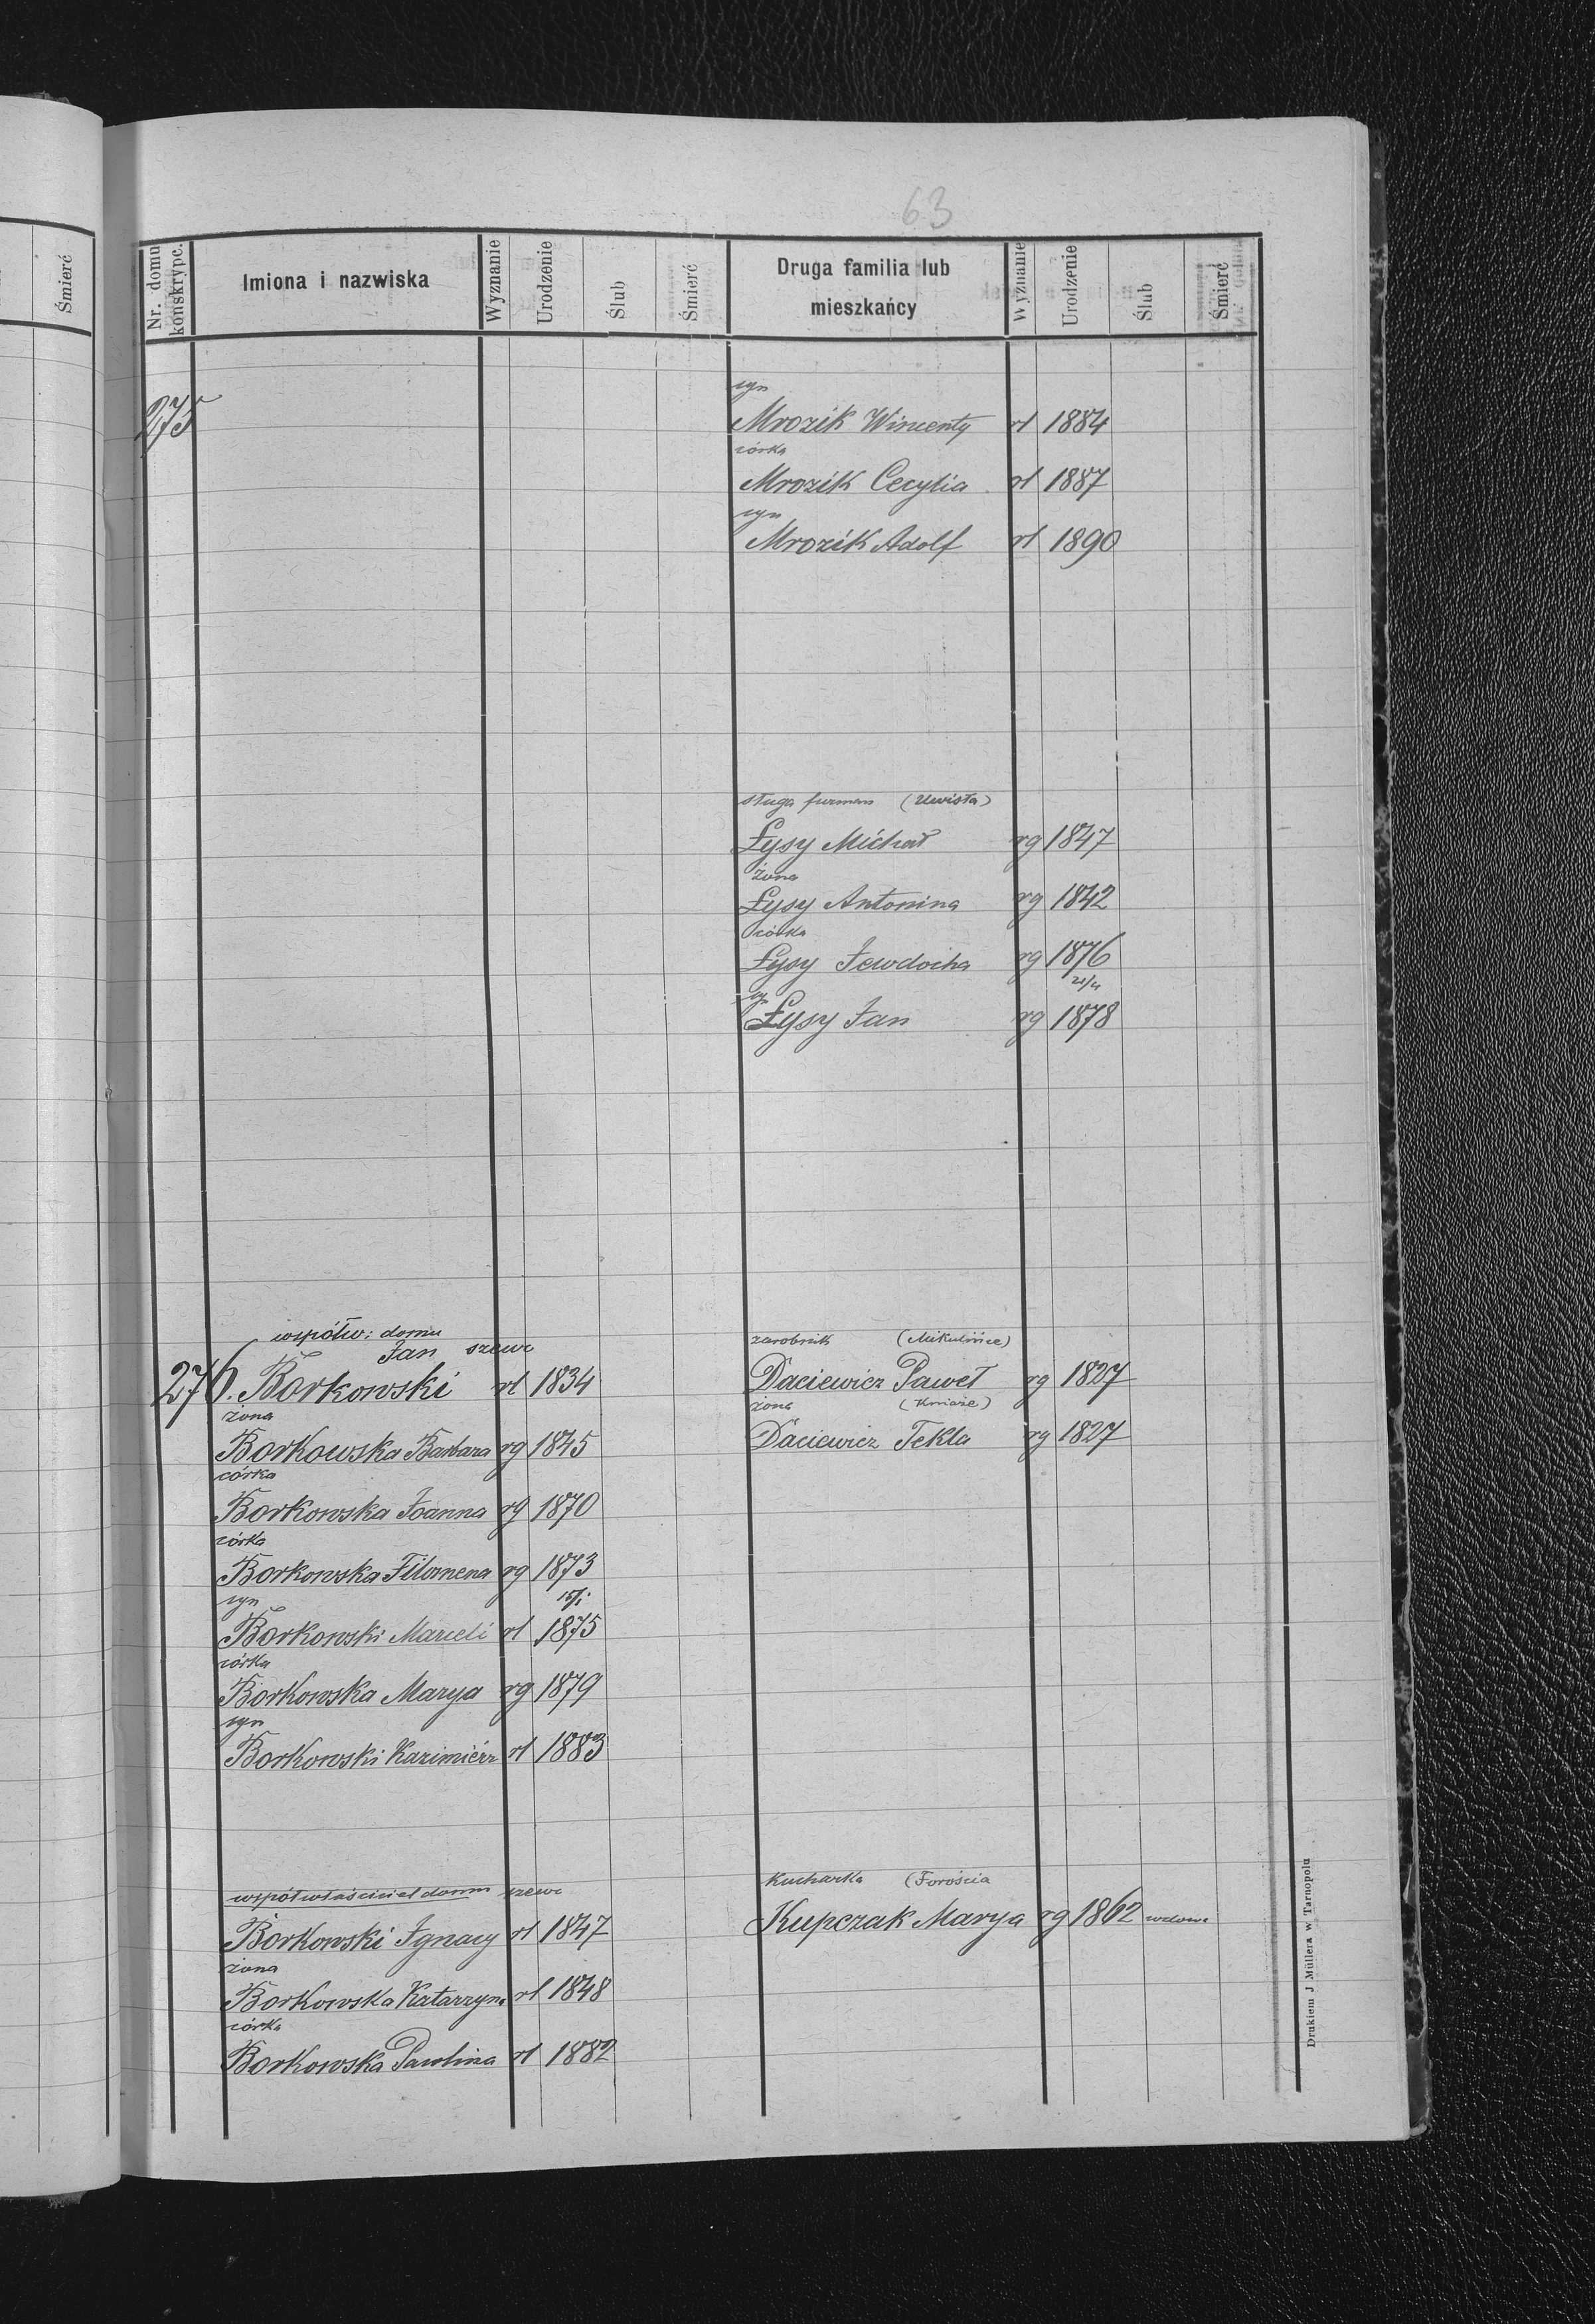 63
Śmierć
Nr. domu konskrypc.
Imiona i nazwiska
Wyznanie
Urodzenie
Ślub
Śmierć
Druga familia lub
mieszkańcy
Wyznanie
Urodzenie
Ślub
Śmierć
275
syn
Mrozik Wincenty rl 1884
córka
Mrozik Cecylia rl 1887
syn
Mrozik Adolf rl 1890
sługa furman (Uwisła)
Łysy Michał rg 1847
żona
Łysy Antonina rg 1842
córka
Łysy Jewdocha rg 1876
syn
Łysy Jan rg 1878
współw: domu
Jan szewc
276. Borkowski rl 1834
żona
Borkowska Barbara rg 1845
córka
Borkowska Joanna rg 1870
córka
Borkowska Filomena rg 1873
syn
Borkowski Marceli rl 1875
córka
Borkowska Marya rg 1879
syn
Borkowski Kazimiérz rl 1883
zarobnik (Mikulińce)
Daciewicz Paweł rg 1827
żona (Kniaże)
Daciewicz Tekla rg 1827
współwłaściciel domu szewc
Borkowski Ignacy rl 1847
żona
Borkowska Katarzyna rl 1848
córka
Borkowska Paulina rl 1882
Kucharka
Kupczak Marya rg 1862 wdowa
Drukiem J Müllera w Tarnopolu